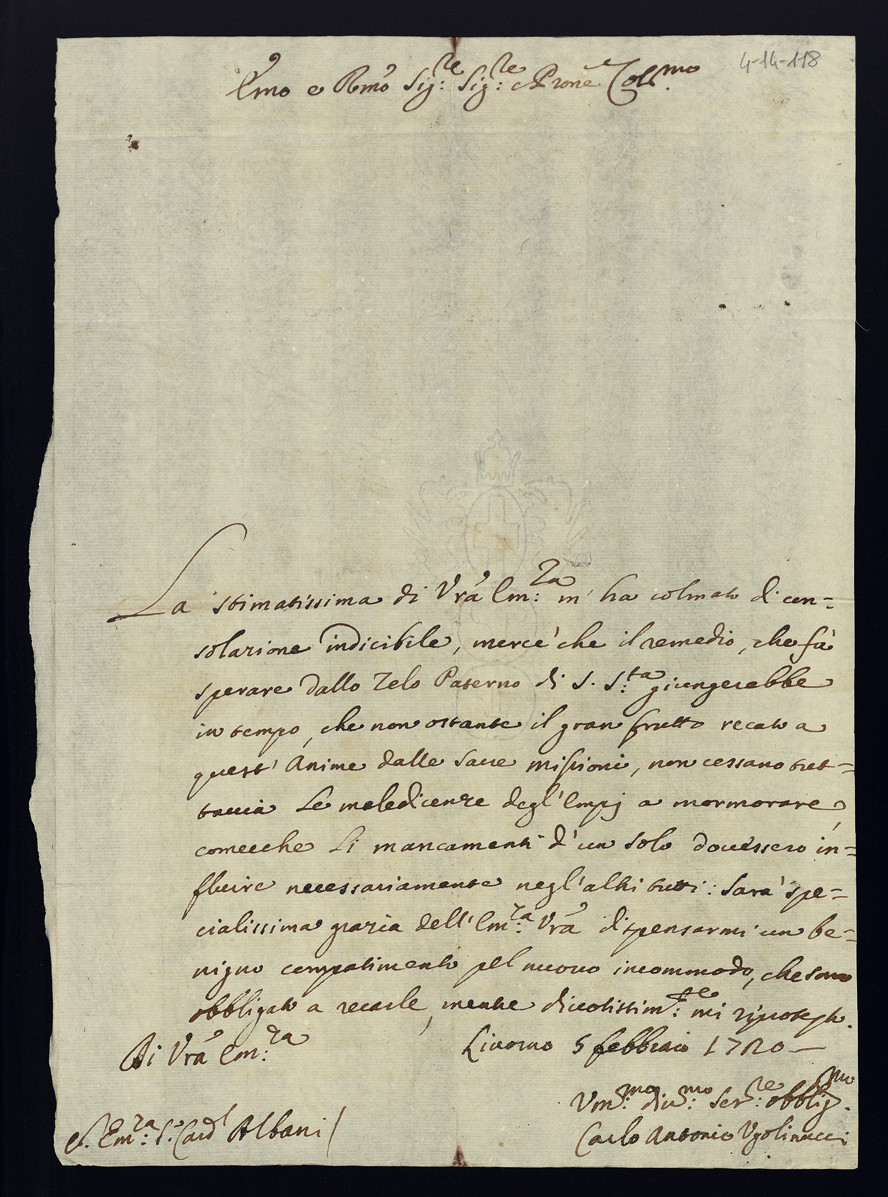 4-14-118
Emo e Rmo Sig:re Sig:re e Prone Colmo.
La stimatissima di Vra Em:za m'ha colmato di con=
solazione indicibile, mercè che il remedio, che fà
sperare dallo Zelo Paterno di S. S:ta giungerebbe
in tempo, che non ostante il gran frutto recato a
quest'Anime dalle Sacre missioni, non cessano tut=
tavia le maledicenze degl'Empj a mormorare,
comecche li mancamenti d'un solo dovessero in=
fluire necessariamente negl'altri tutti: Sarà spe=
cialissima grazia dell'Em:za Vra dispensarmi un be=
nigno compatimento pel nuovo incommodo, che sono
obbligato a recarle, mentre divotissim:te mi riprotesto.
Di Vra Em:za
Livorno 5 febbraio 1720
Vm:mo div:mo Ser:re obblig:mo
Carlo Antonio Vgolinucci
Em:za S:r Card:l Albani